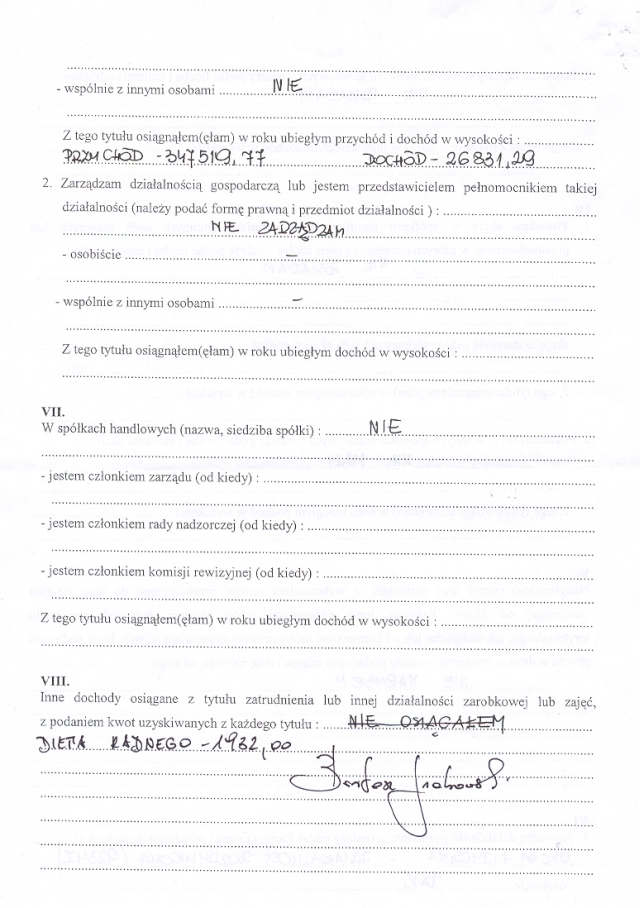 - wspólnie z innymi osobami NIE
Z tego tytułu osiągnąłem(ęłam) w roku ubiegłym przychód i dochód w wysokości :
PRZYCHÓD - 347519,77 DOCHÓD - 26831,29
2. Zarządzam działalnością gospodarczą lub jestem przedstawicielem pełnomocnikiem takiej
działalności (należy podać formę prawną i przedmiot działalności ) :
NIE ZADZĄDZAM
- osobiście –
- wspólnie z innymi osobami –
Z tego tytułu osiągnąłem(ęłam) w roku ubiegłym dochód w wysokości :
VII.
W spółkach handlowych (nazwa, siedziba spółki) : NIE
- jestem członkiem zarządu (od kiedy) :
- jestem członkiem rady nadzorczej (od kiedy) :
- jestem członkiem komisji rewizyjnej (od kiedy) :
Z tego tytułu osiągnąłem(ęłam) w roku ubiegłym dochód w wysokości :
VIII.
Inne dochody osiągane z tytułu zatrudnienia lub innej działalności zarobkowej lub zajęć,
z podaniem kwot uzyskiwanych z każdego tytułu : NIE OSIĄGAŁEM
DIETA RADNEGO - 1932,00